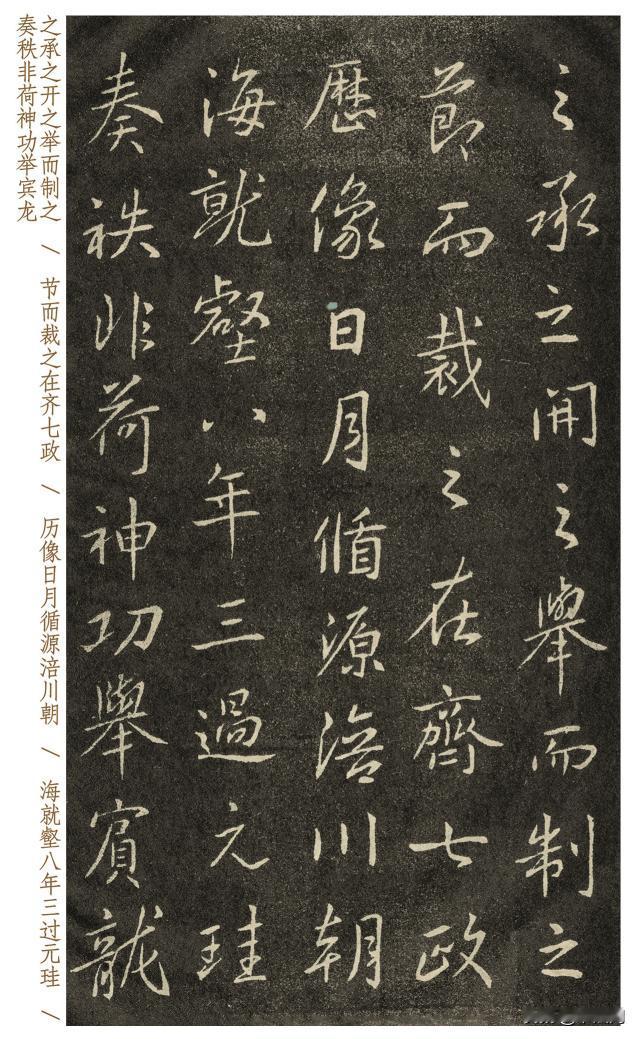 之承之開之舉而制之
節而裁之在齊七政
歷像日月循源涪川朝
海就壑八年三過元珪
奏秩非荷神功舉賓龍
之承之开之举而制之 / 节而裁之在齐七政 / 历像日月循源涪川朝 / 海就壑八年三过元珪 /
奏秩非荷神功举宾龙